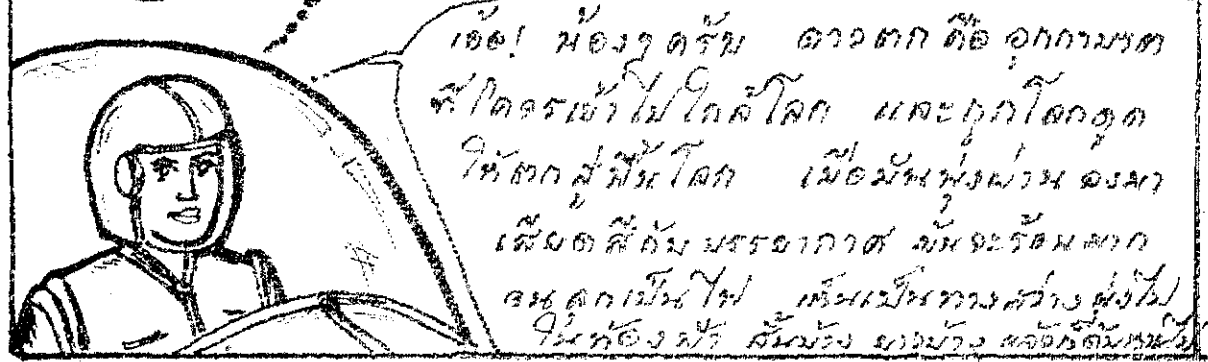 เอ้อ! น้องๆ ครับ ดาวตก คือ อุกกาบาต
ที่โคจรเข้าไปใกล้โลก และถูกโลกดูด
ให้ตกสู่พื้นโลก เมื่อมันพุ่งผ่าน ลงมา
เสียดสีกับ บรรยากาศ มันจะร้อนมาก
จนลุกเป็นไฟ เห็นเป็นทางสว่าง พุ่งไป
ในท้องฟ้า สั้นบ้าง ยาวบ้าง แล้วก็ดับหายไป